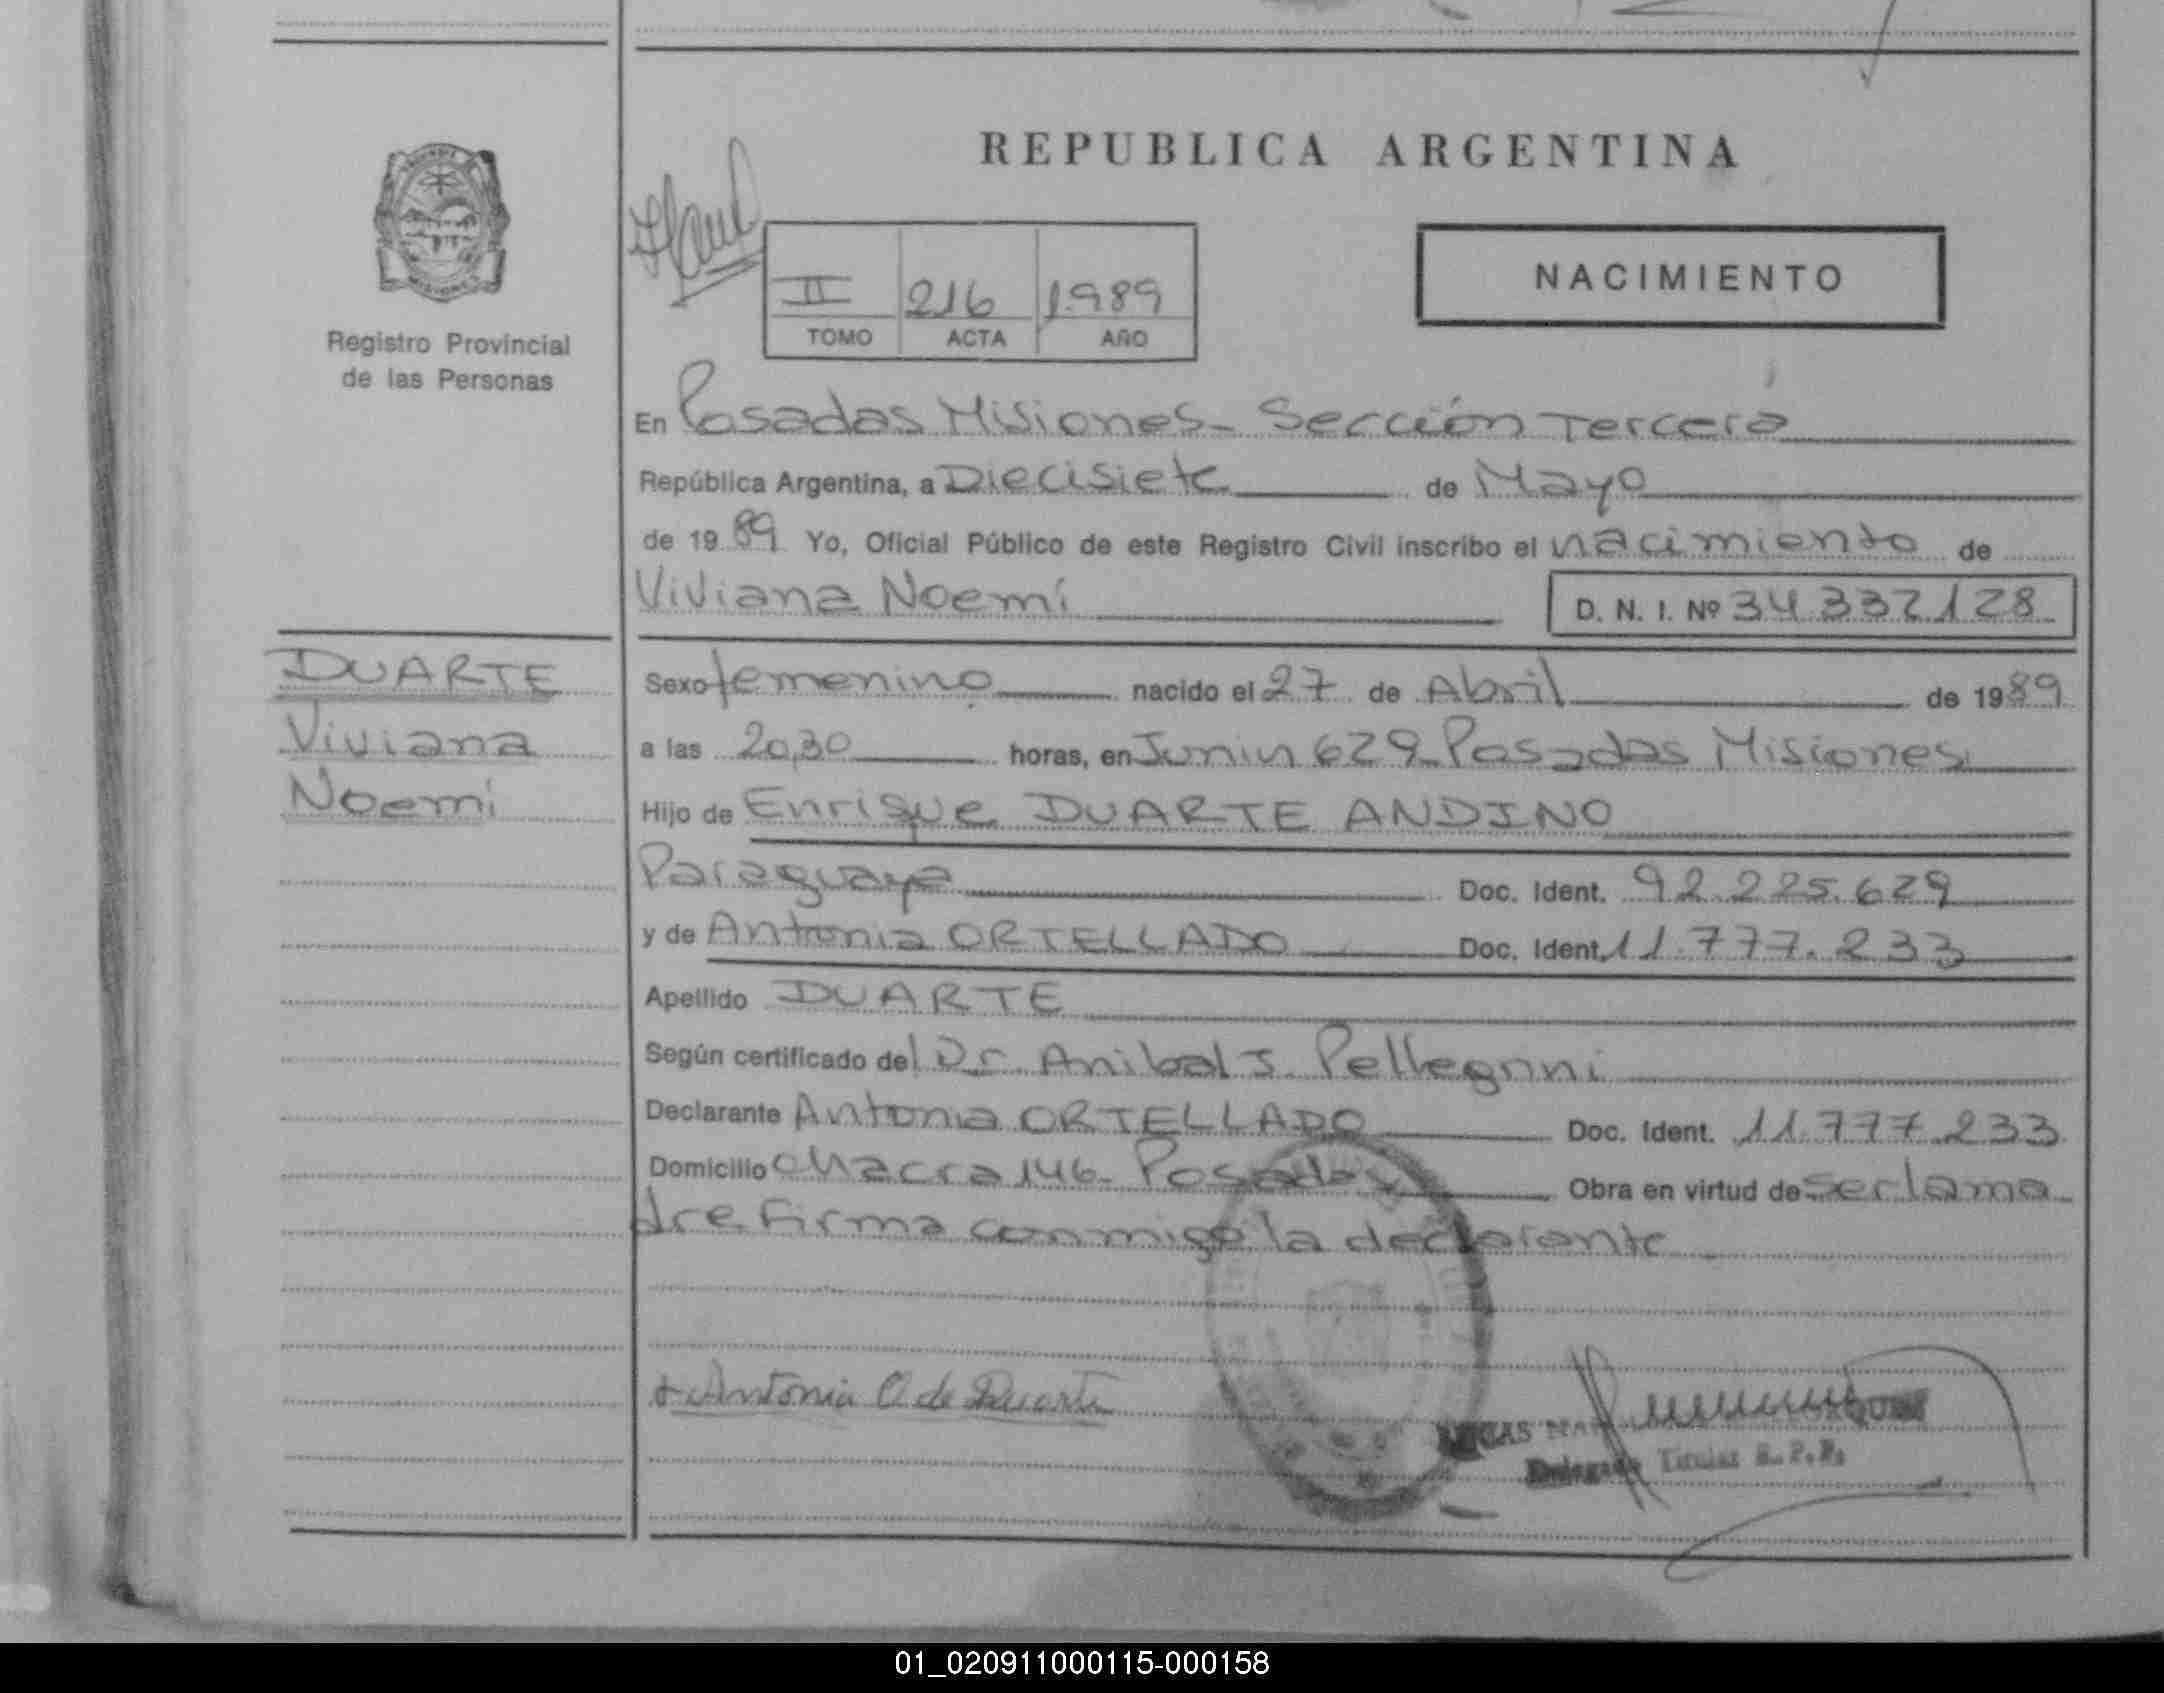 REPUBLICA ARGENTINA
NACIMIENTO
II 216 1989
TOMO ACTA AÑO
Registro Provincial
de las Personas
En Posadas Misiones - Sección Tercera
República Argentina, a Diecisiete de Mayo
de 1989 Yo, Oficial Público de este Registro Civil inscribo el nacimiento de
Viviana Noemí
D. N. I. Nº 34.332.128
DUARTE
Viviana
Noemí
Sexo femenino nacido el 27 de Abril de 1989
a las 20,30 horas, en Junin 629 Posadas Misiones
Hijo de Enrique DUARTE ANDINO
Paraguaya Doc. Ident. 92.225.629
y de Antonia ORTELLADO Doc. Ident. 11.777.233
Apellido DUARTE
Según certificado del Dr. Anibal J. Pellegrini
Declarante Antonia ORTELLADO Doc. Ident. 11.777.233
Domicilio Chacra 146- Posadas Obra en virtud de ser la ma
dre firma conmigo la declarante
Antonia O de Duarte
Delegado Titular R.P.P.
01_020911000115-000158